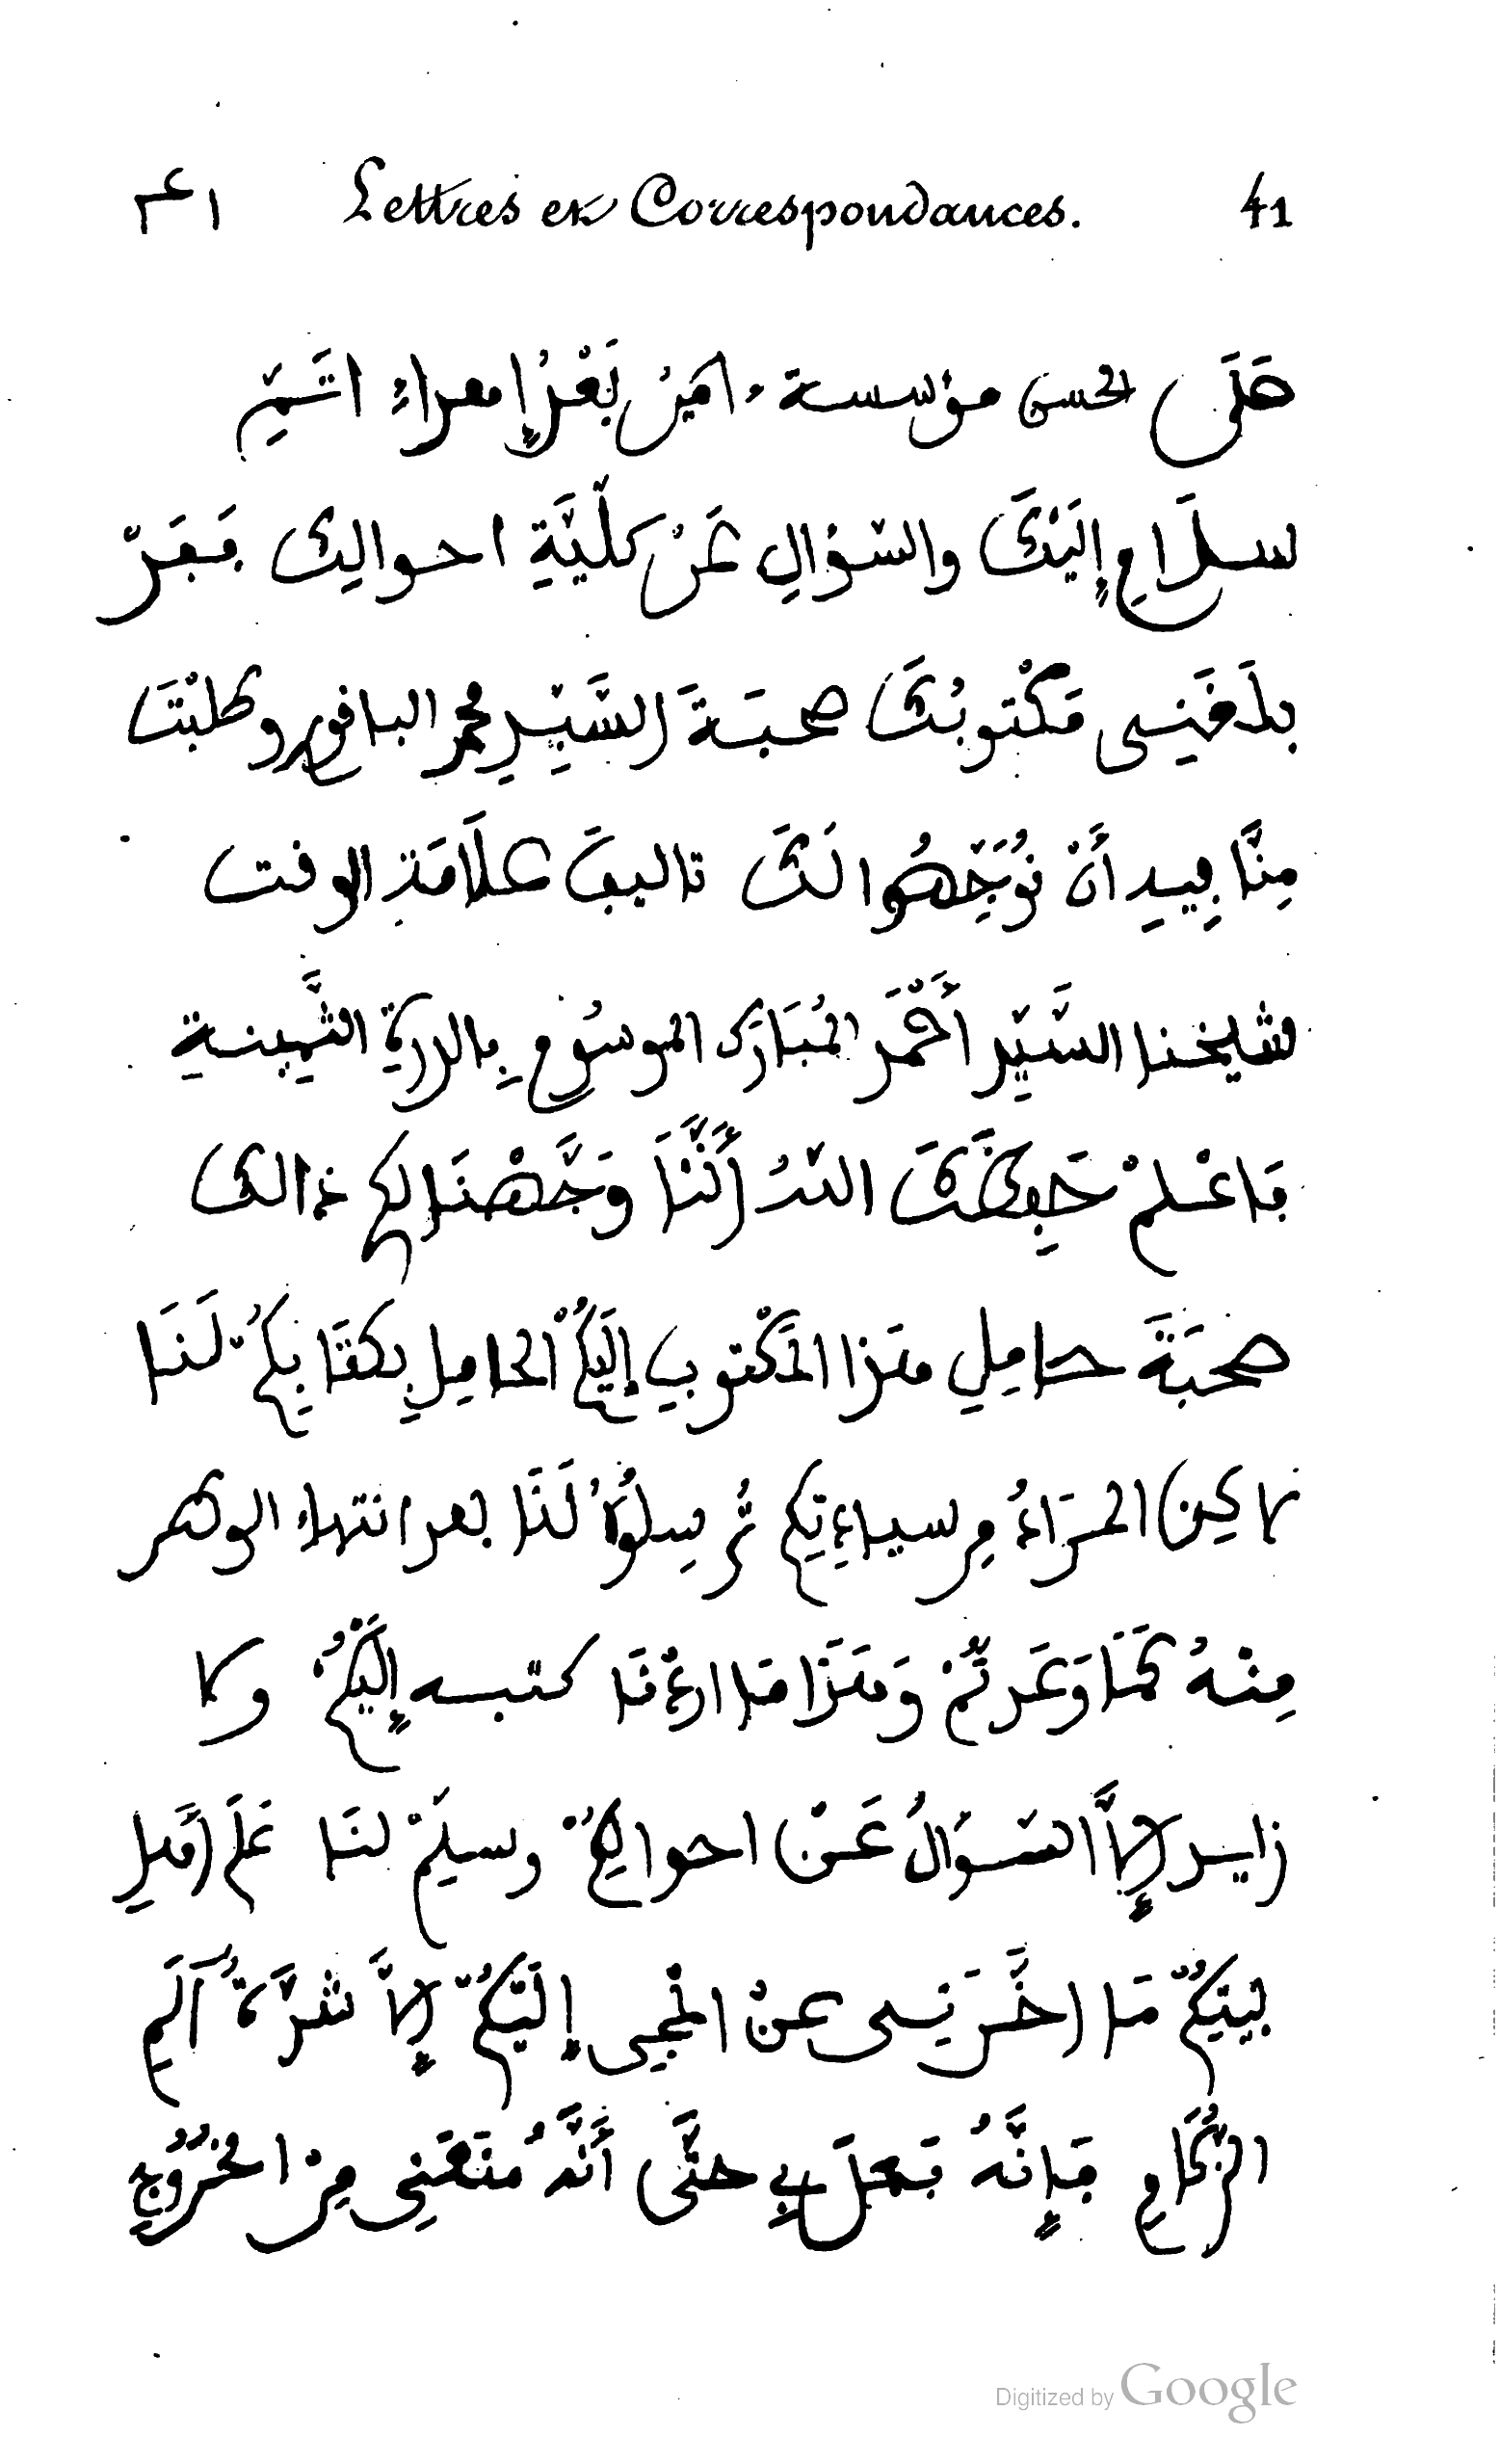 ۴۱ Lettres et Correspondances. 41
هَلَى الحسن مؤسسة، امين بَعْدَ إهداءِ اتَمِّ
سلَامٍ إلَيْكَ والسّؤالِ عَنْ كلّيَّةِ احوالِك فَقَدْ
بلغَنِى مَكْتوبُكَ صحبَةَ السَّيِّدِ محمد البافور وطلبْتَ
مِنَّا فِيهِ أنْ نُوَجِّهُوا لَكَ تاليفَ علَّامَةِ الوقت
شيخنا السَّيِّد أحْمَد المُبَارَك الموسُومِ بِالدرةِ الثَّمِينةِ
فَاعْلمْ حَفِظَكَ اللهُ أنَّنَا وَجَّهْنَا لكم ذالك
صحْبَةَ حامِلِ هَذا المَكْتوبِ إلَيْكُمُ الحامِلِ بِكتَابِكُمْ لَنَا
المَرَادُ مِن سيادتِكم تُرْسِلُوهُ لَنَا بعد انتهاء الوطر
مِنْهُ كَمَا وَعَدتُّمْ وَهَذَا مَا اردْنَا كتبه إلَيْكُمْ ولا
زايد إلاَّ السّؤالُ عَنْ احوالِكُمْ وسلِّمْ لنَا عَلَى أهْلِ
بيتِكُمْ مَا اخَّرَنِى عنْ المَجِى إلَيْكُمْ إلاَّ شدَّةُ ألَمِ
الزُّكَامِ فَإنَّهُ فَعلَ بِي حتَّى أنَّهُ مَنَعَنِى مِنَ الخُرُوجِ
Digitized by Google